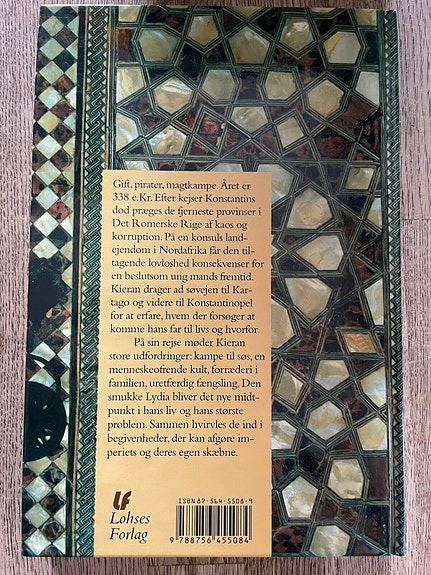 Gift, pirater, magtkampe. Året er
338 e.Kr. Efter kejser Konstantins
død præges de fjerneste provinser i
Det Romerske Rige af kaos og
korruption. På en konsuls land-
ejendom i Nordafrika får den til-
tagende lovløshed konsekvenser for
en beslutsom ung mands fremtid.
Kieran drager ad søvejen til Kar-
tago og videre til Konstantinopel
for at erfare, hvem der forsøger at
komme hans far til livs og hvorfor.
På sin rejse møder Kieran
store udfordringer: kampe til søs, en
menneskeofrende kult, forræderi i
familien, uretfærdig fængsling. Den
smukke Lydia bliver det nye midt-
punkt i hans liv og hans største
problem. Sammen hvirvles de ind i
begivenheder, der kan afgøre im-
periets og deres egen skæbne.
LF
Lohses
Forlag
ISBN 87-564-5508-9
9 788756 455084